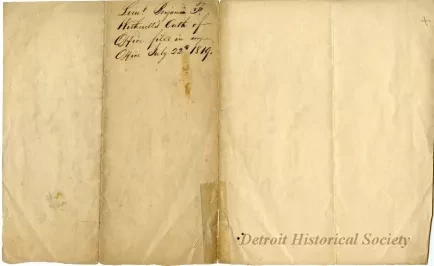 Lieut. Benjamin F. H.
Witherell's Oath of
Office filed in my
Office July 22d 1819.
Detroit Historical Society